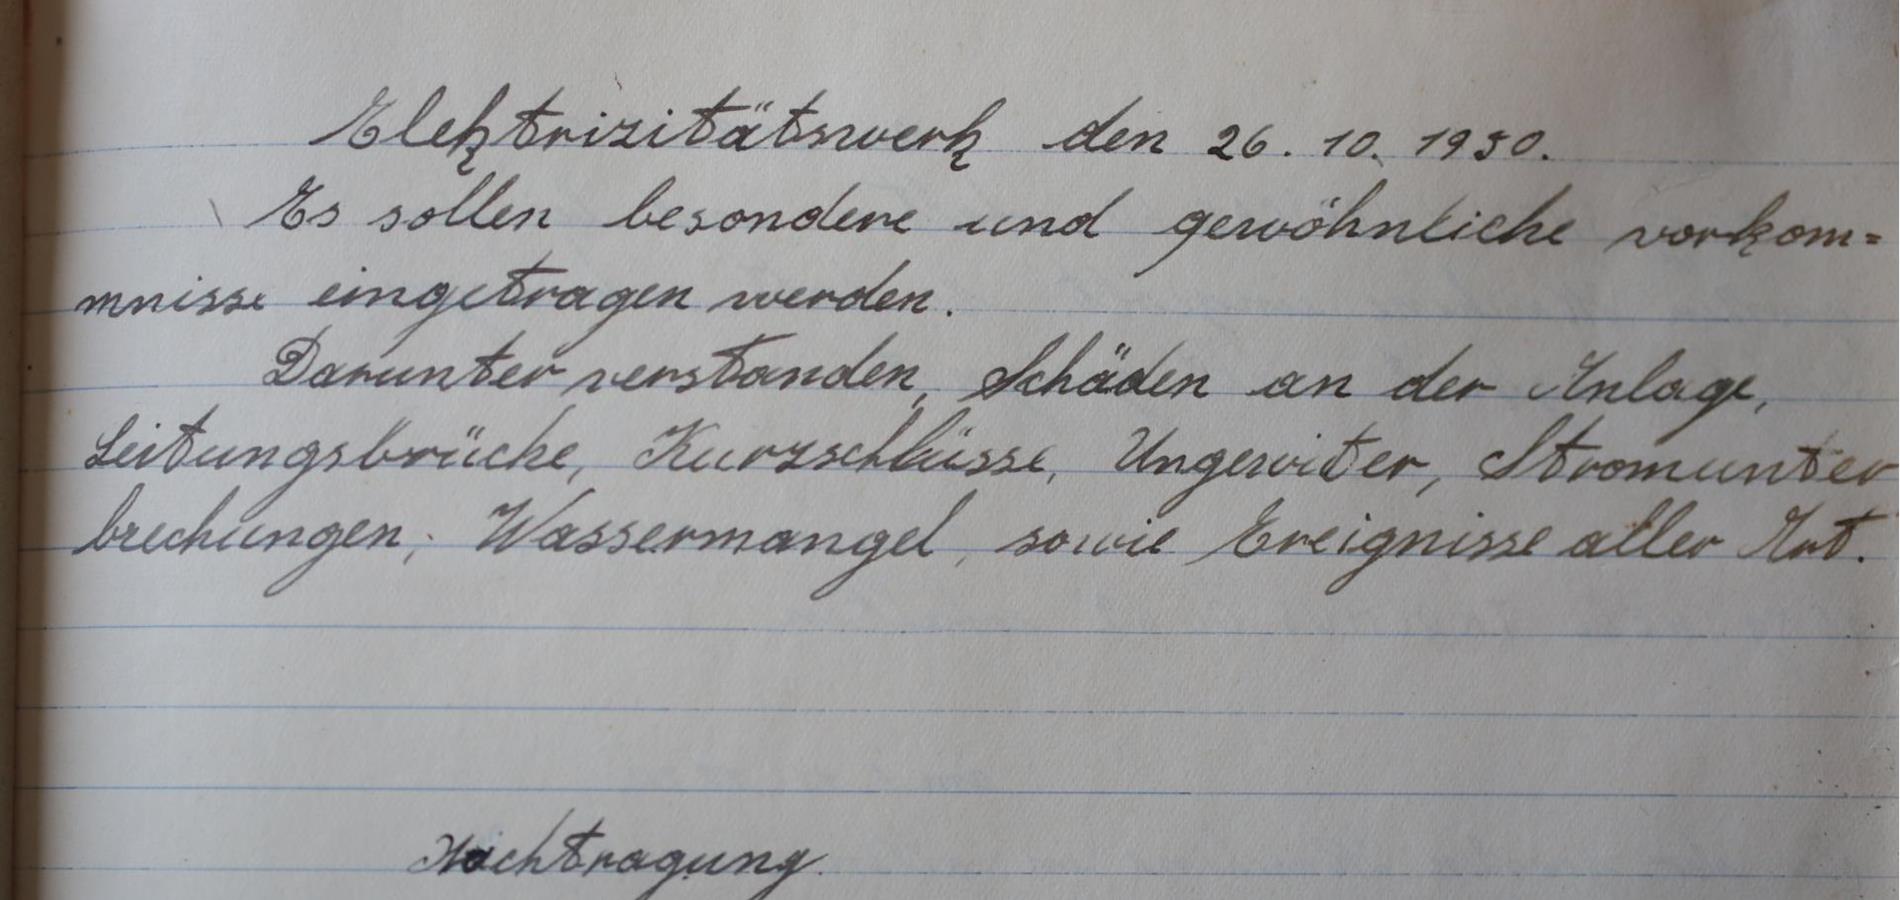 Elektrizitätswerk den 26. 10. 1930.
Es sollen besondere und gewöhnliche vorkom=
mnisse eingetragen werden.
Darunter verstanden, Schäden an der Anlage,
Leitungsbrüche, Kurzschlüsse, Ungewiter, Stromunter
brechungen, Wassermangel, sowie Ereignisse aller Art.
Nachtragung.